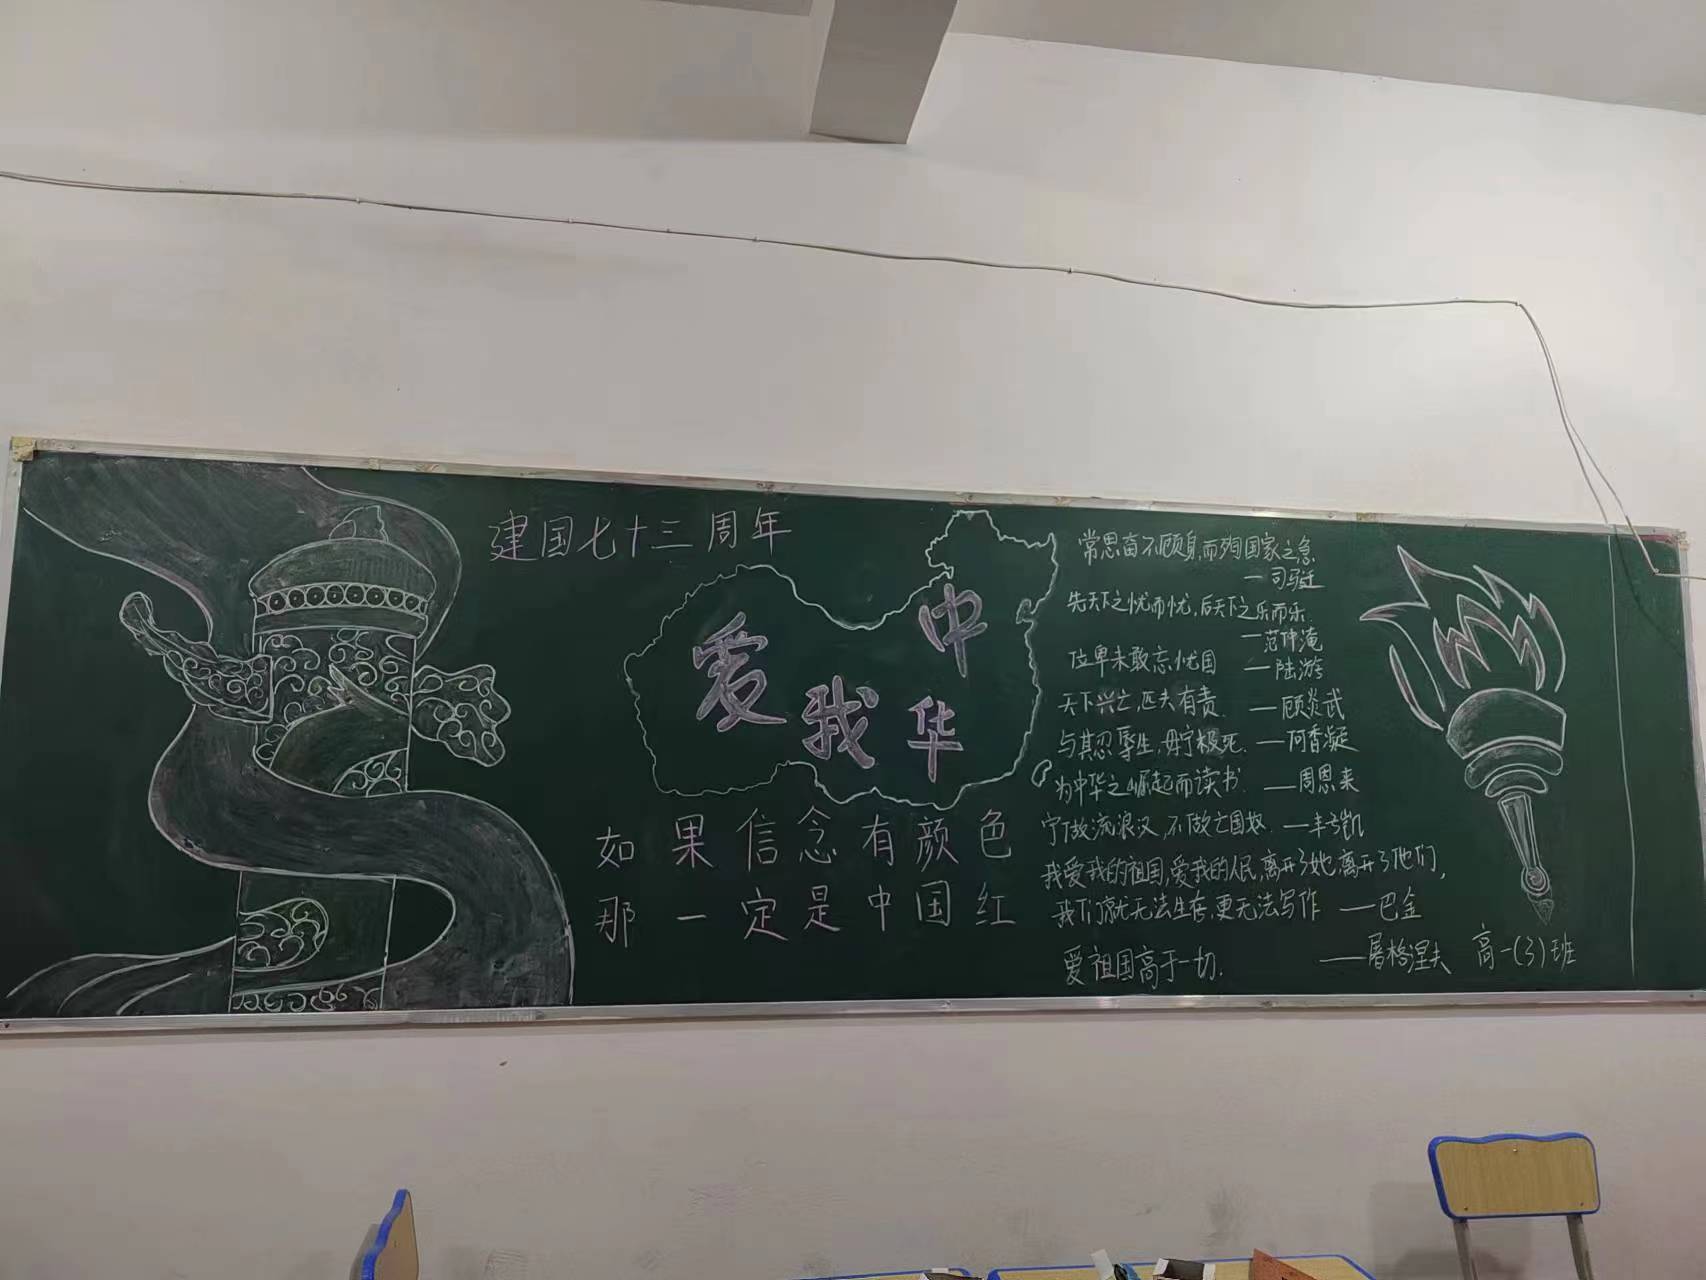 建国七十三周年
爱我中华
如果信念有颜色
那一定是中国红
常思奋不顾身,而殉国家之急
—司马迁
先天下之忧而忧,后天下之乐而乐.
—范仲淹
位卑未敢忘忧国 —陆游
天下兴亡,匹夫有责. —顾炎武
与其忍辱生,毋宁报死. —何香凝
为中华之崛起而读书. —周恩来
宁做流浪汉,不做亡国奴. —丰子凯
我爱我的祖国,爱我的人民,离开了她,离开了他们,
我们就无法生存,更无法写作 —巴金
爱祖国高于一切. —屠格涅夫
高一(3)班